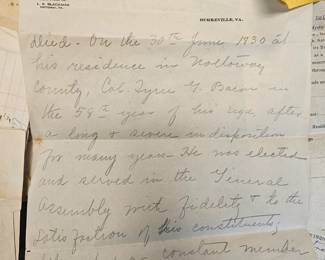 L. E. BLACKMAN
BURKEVILLE, VA.
died. On the 30th June 1830 at
his residence in Nottoway
County, Col. Tyree G. Bacon in
the 58th year of his age, after
a long & severe indisposition
for many years. He was elected
and served in the General
Assembly with fidelity & to the
satisfaction of his constituents;
constant member